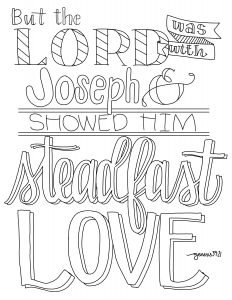 But the
LORD was with
Joseph &
SHOWED HIM
steadfast
LOVE
genesis 39:21